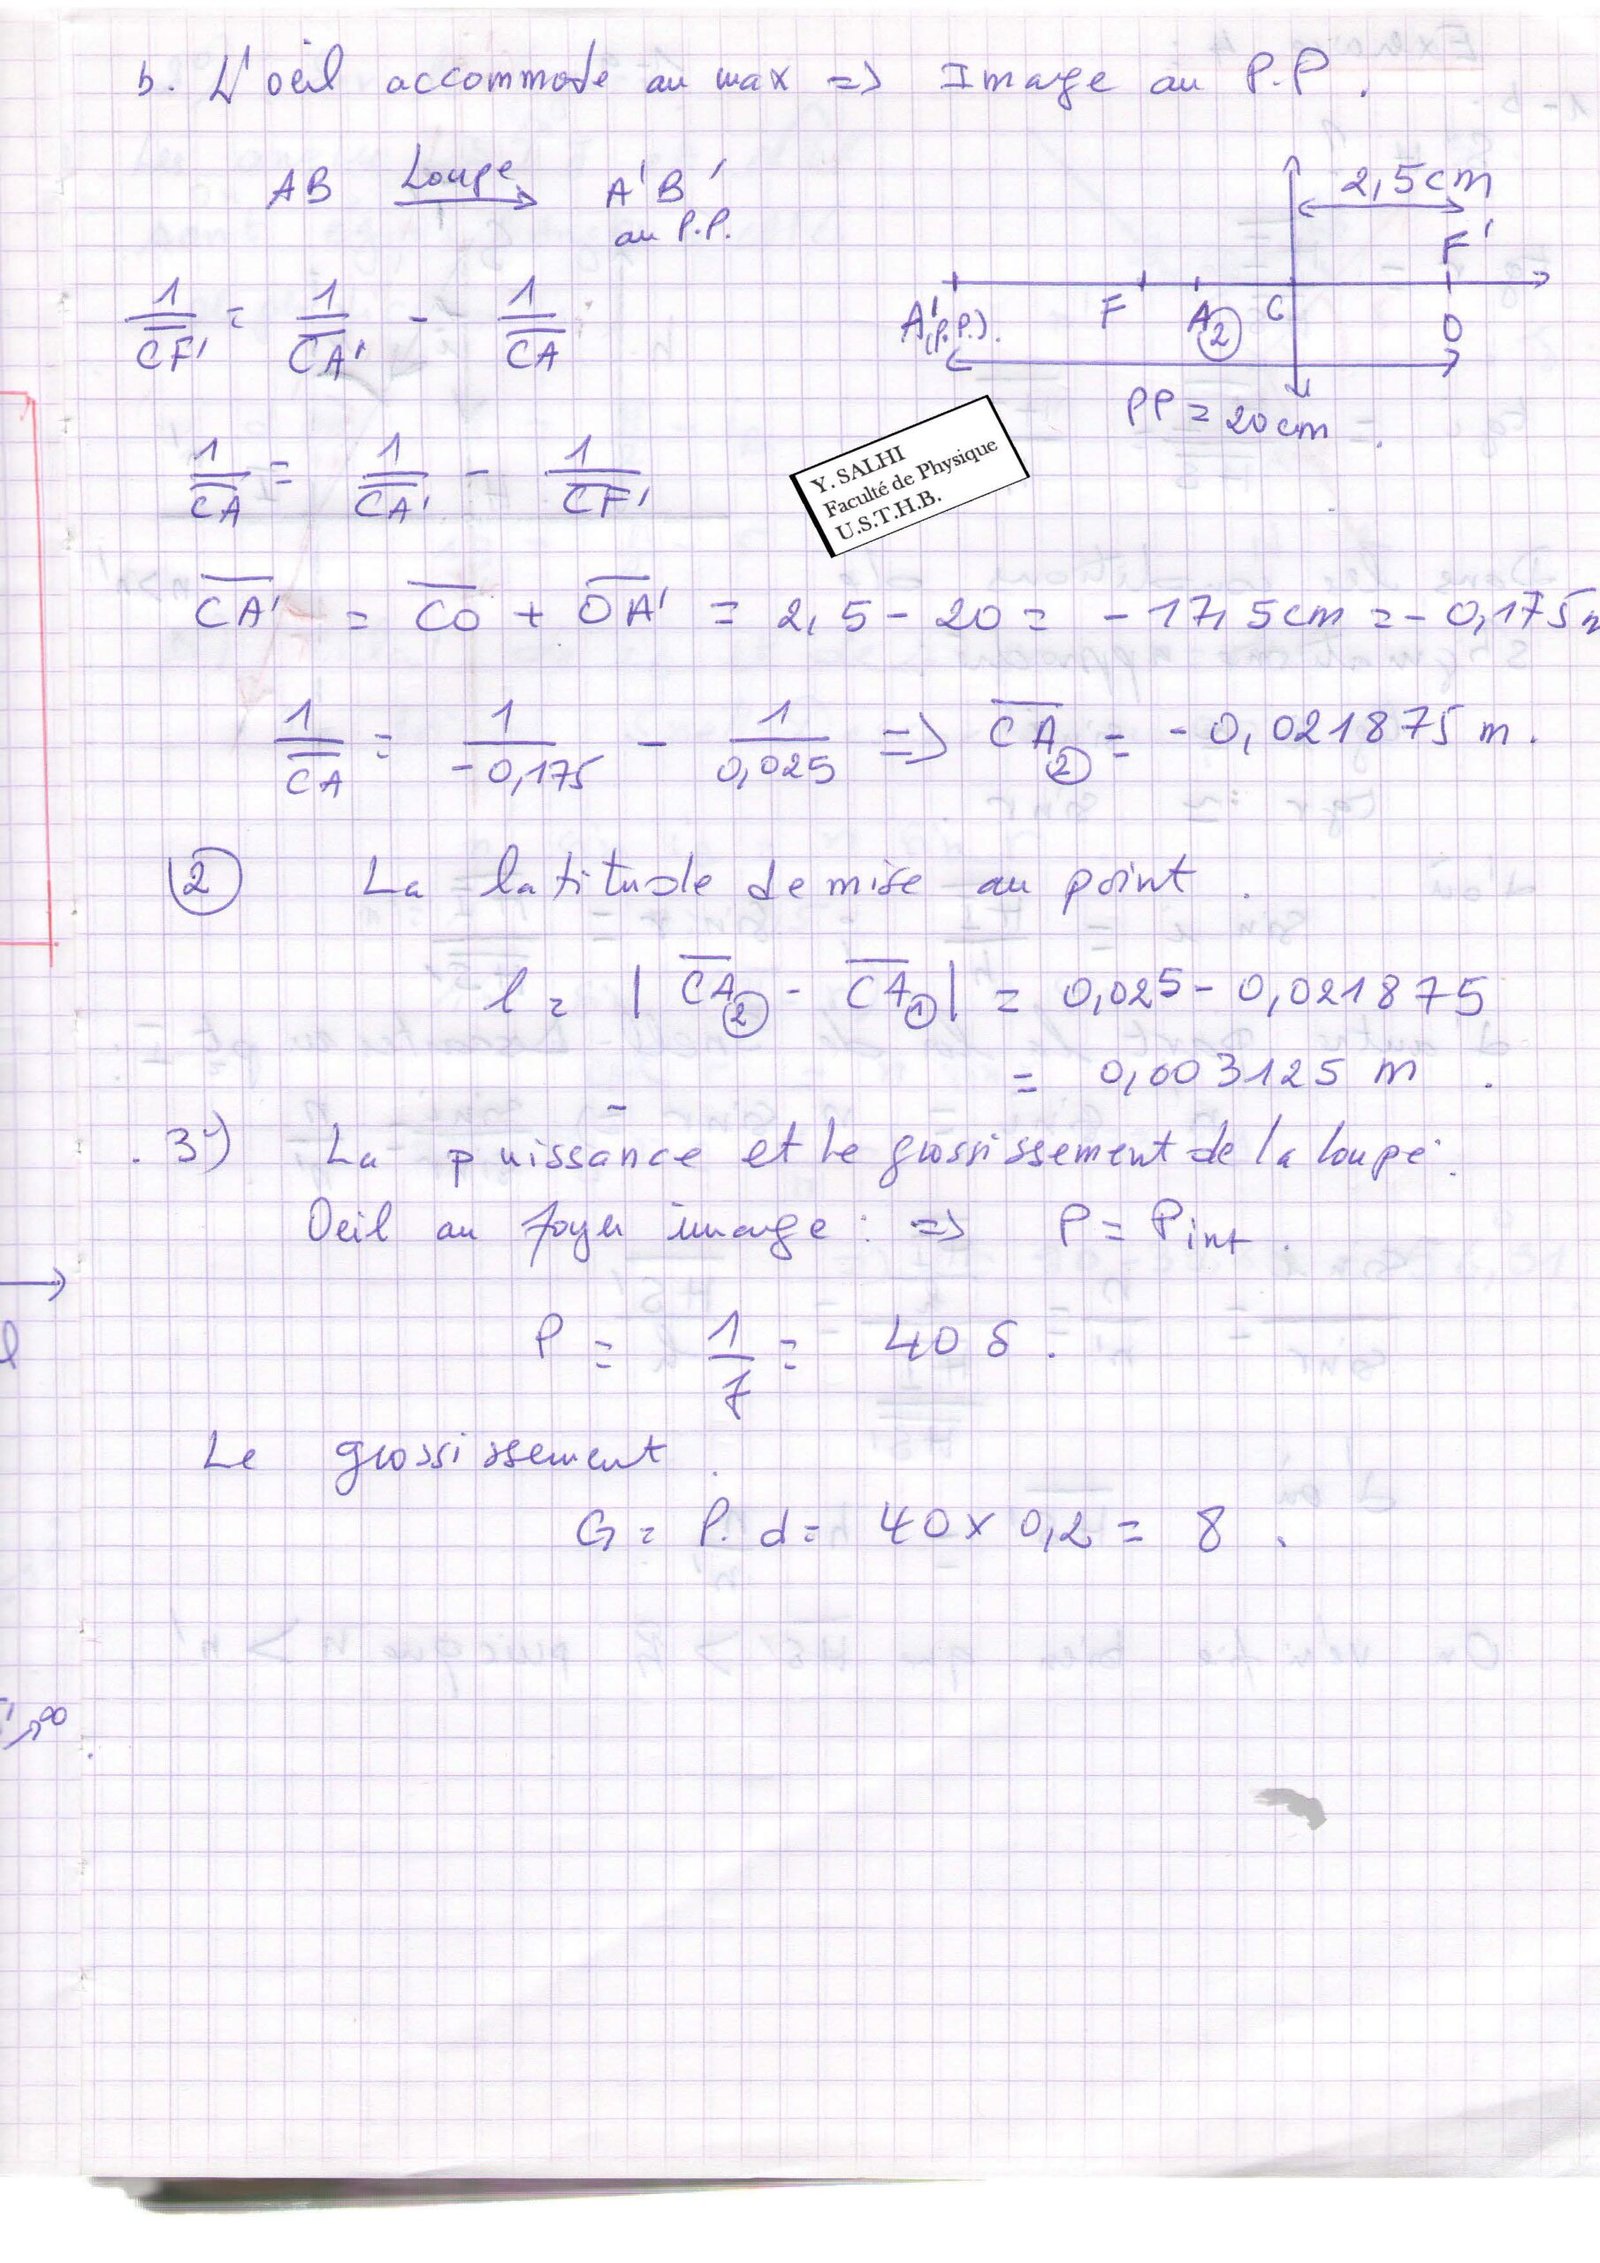 b. L'oeil accommode au max => Image au P.P.
AB Loupe → A'B'
au P.P.
2,5cm
F'
A'(P.P.). F A② C O
PP = 20cm.
1/CF' = 1/CA' - 1/CA
1/CA = 1/CA' - 1/CF'
Y. SALHI
Faculté de Physique
U.S.T.H.B.
CA' = CO + OA' = 2,5 - 20 = - 17,5cm = - 0,175m
1/CA = 1/-0,175 - 1/0,025 => CA② = - 0,021875 m.
② La latitude de mise au point.
l = | CA② - CA① | = 0,025 - 0,021875
= 0,003125 m.
3°) La puissance et le grossissement de la loupe.
Oeil au foyer image : => P = Pint.
P = 1/f = 40 δ.
Le grossissement.
G = P. d = 40 x 0,2 = 8.